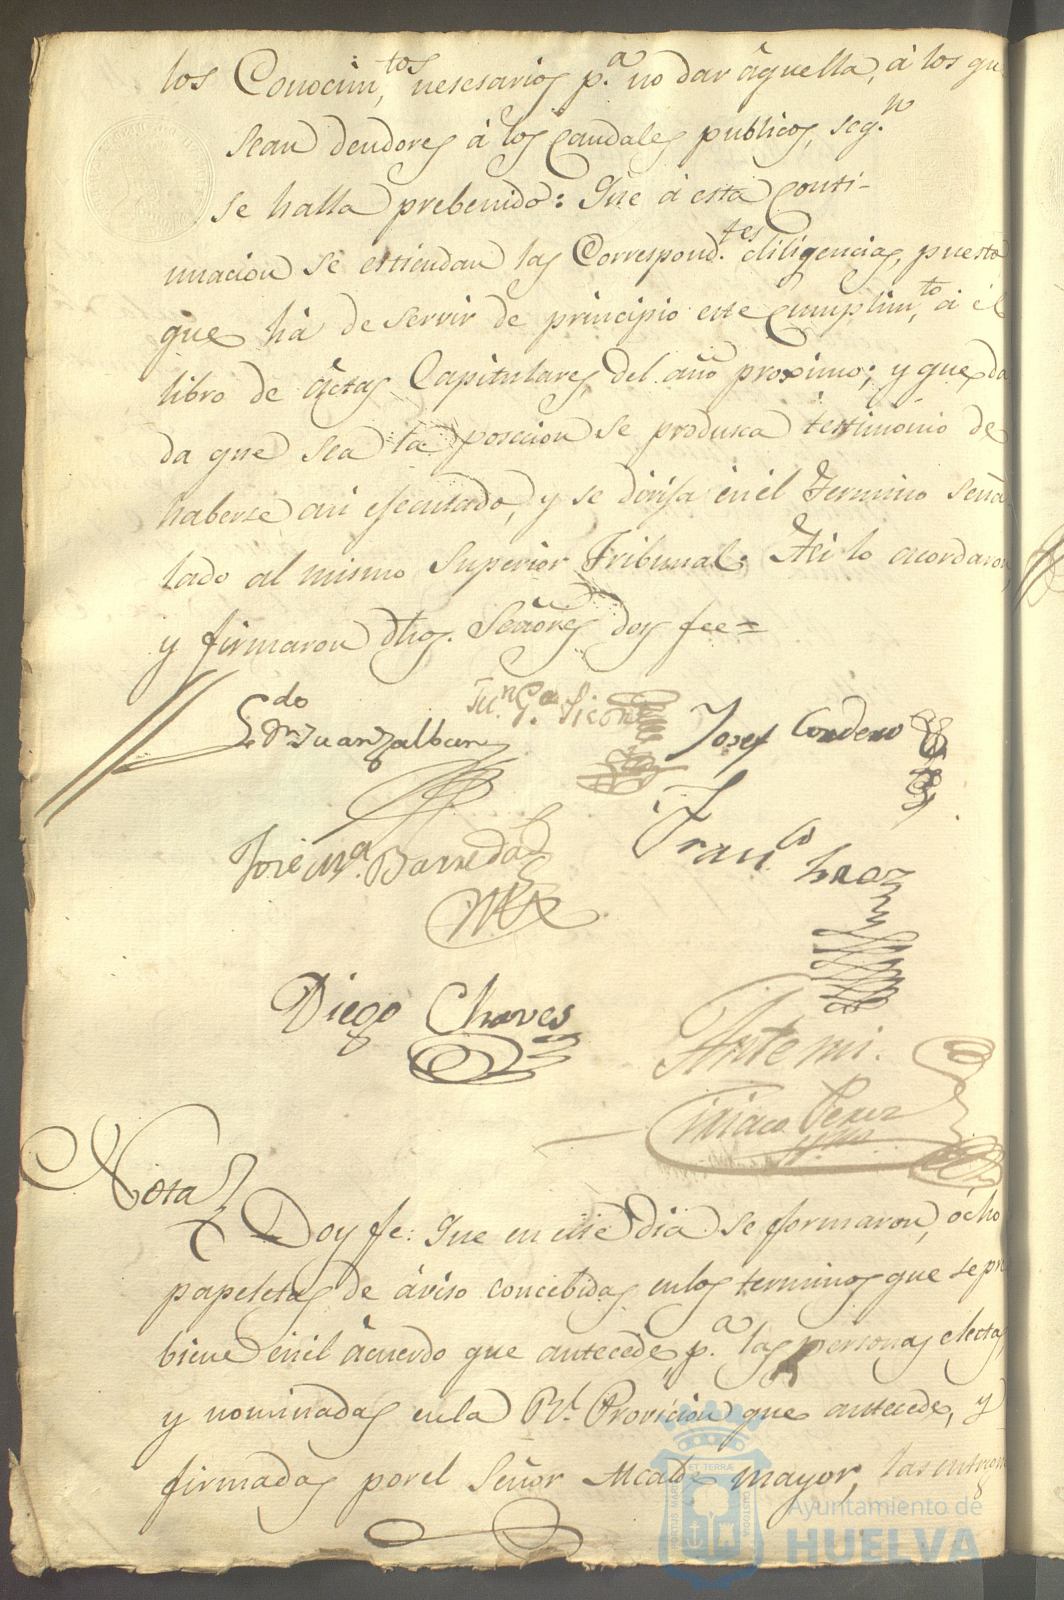 los Conocim.tos nesesarios p.a no dar àquella, à los que
sean deudores à los caudales publicos, seg.n
se halla prebenido: Que à esta conti-
nuacion se estiendan las Correspond.tes diligencias, puesto
que hà de servir de principio este Cumplim.to à el
libro de Actas Capitulares del año proximo; y que da
da que sea la posecion se produsca testimonio de
haberse asi ejecutado, y se dirija en el Termino seña
lado al mismo Superior Tribunal: Asi lo acordaron,
y firmaron dhos. Señores doy fee=
L.do D.n Juan Zalbur
Josef Cordero
Jose M.a Barreda
Fran.co
Diego Chaves
Ante mi.
Ciriaco Perez
Nota
Doy fe: Que en este dia se formaron, ocho
papeletas de àviso concebidas en los terminos que se pre
biene en el àcuerdo que antecede, p.a las personas electas,
y nominadas en la R.l Provicion que antecede, y
firmadas por el Señor Alcalde mayor, las entregue
Ayuntamiento de
HUELVA